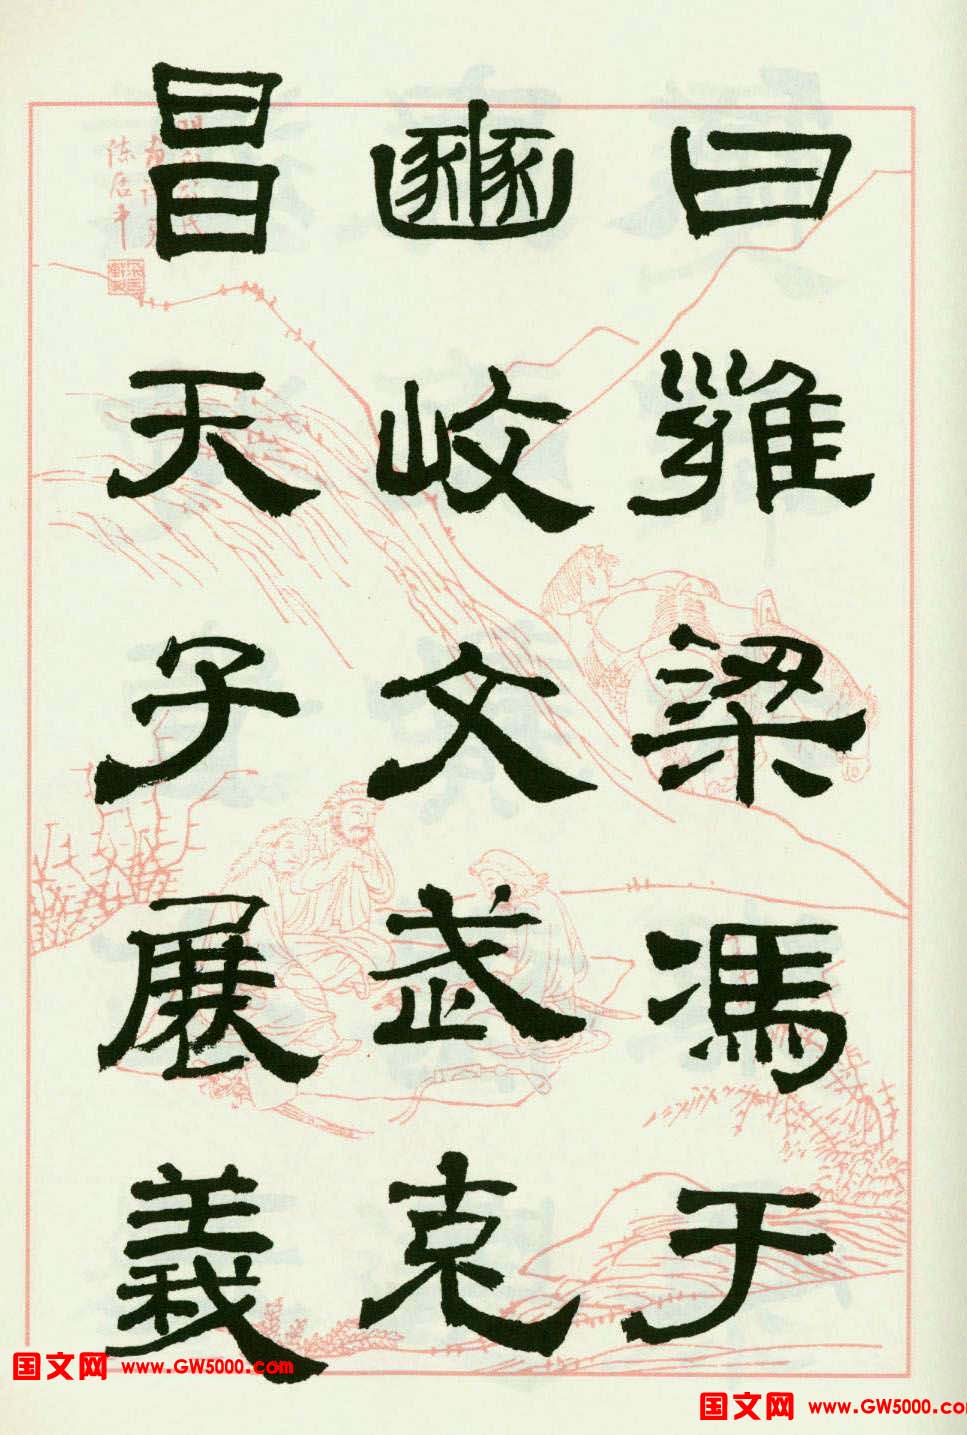 曰雍梁馮于
豳岐文武克
昌天子展義
陈居中
国文网 www.GW5000.com
国文网 www.GW5000.co